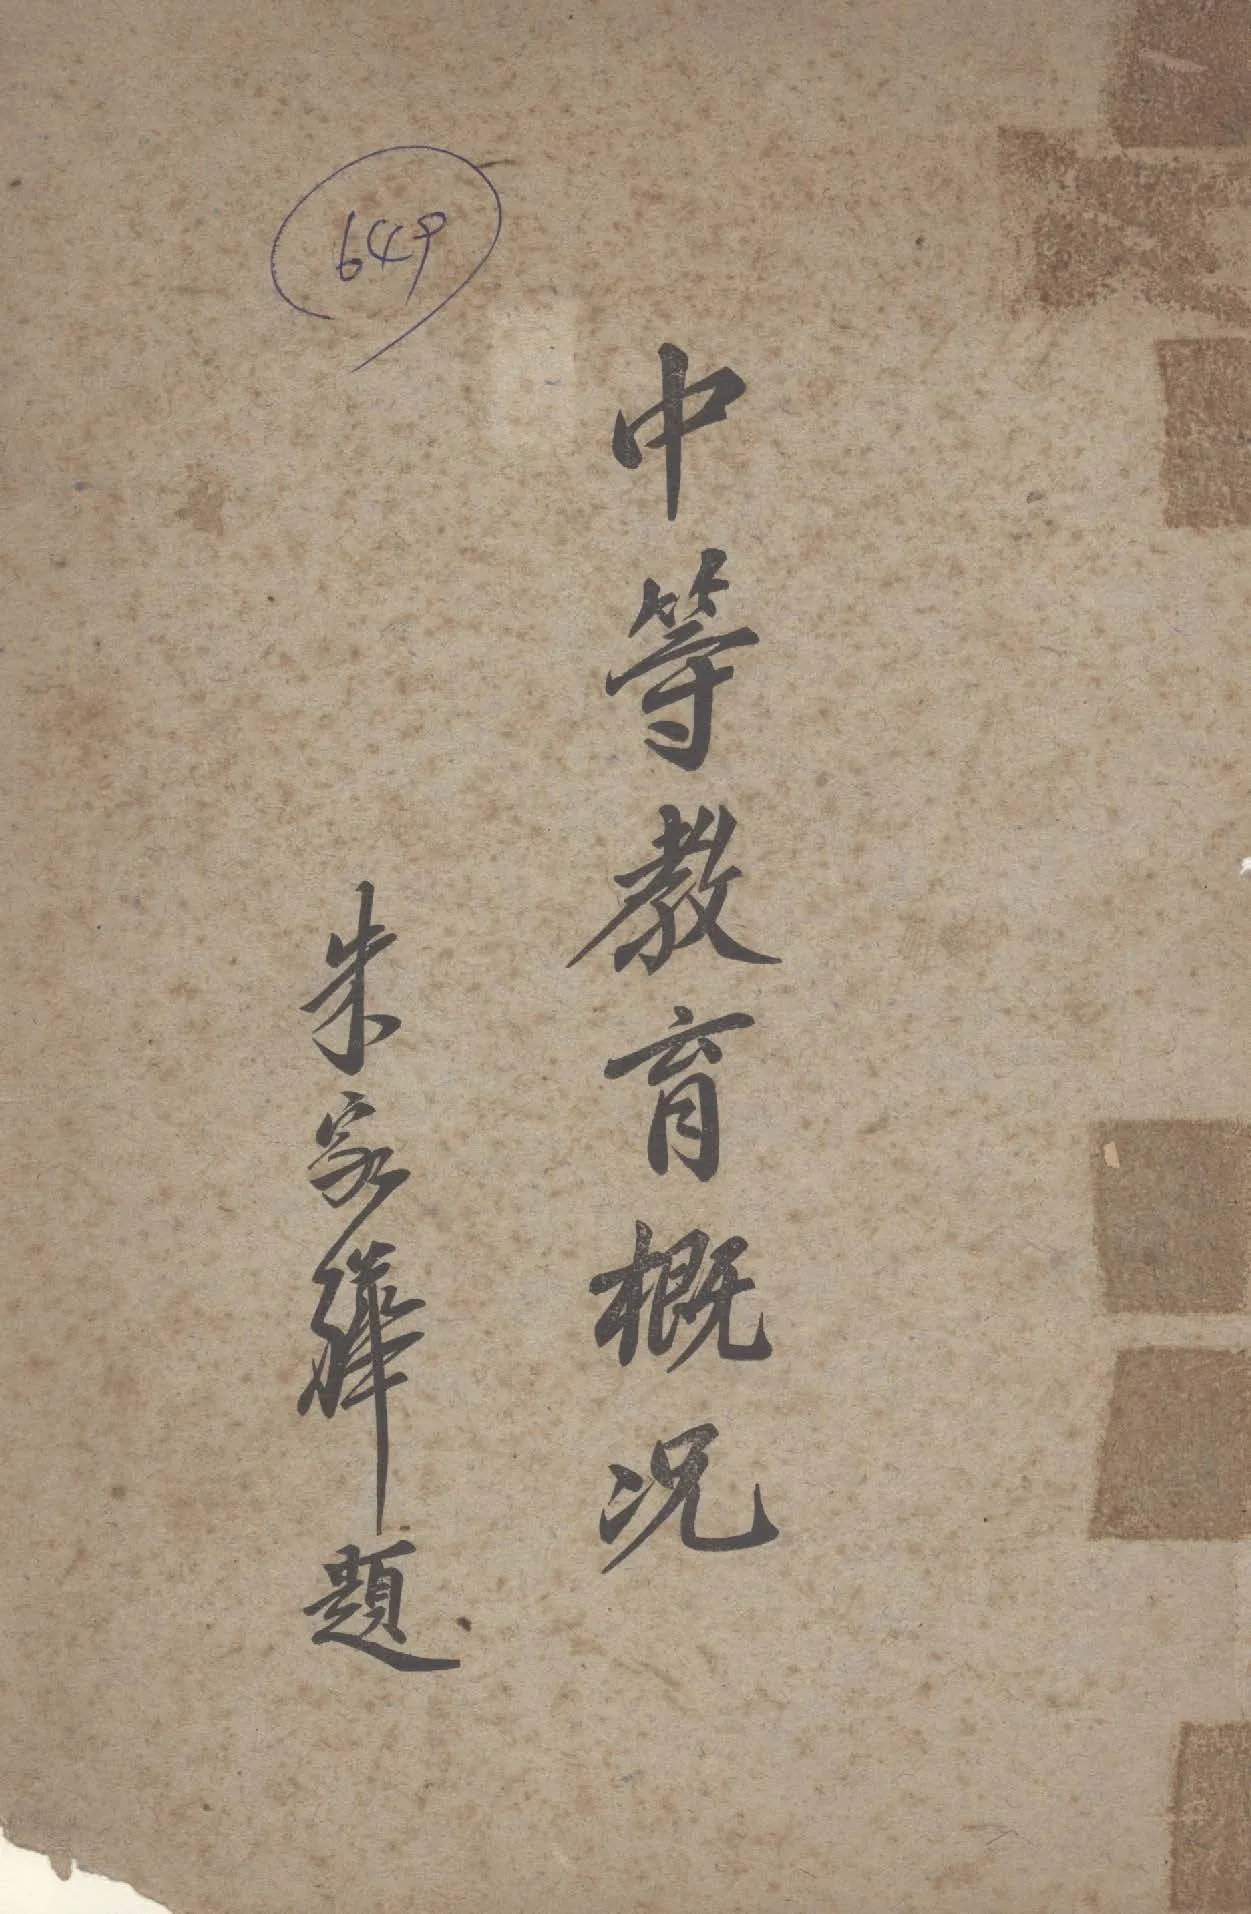 649
中等教育概况
朱家驊題